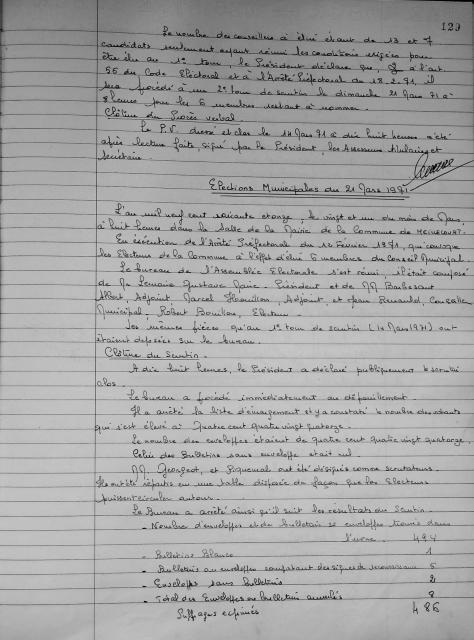 129
Le nombre des conseillers à élire étant de 13 et 7
candidats seulement ayant réuni les conditions exigées pour
être élu au 1er tour, le Président déclare que, à l'art.
55 du Code Electoral et à l'Arrêté Préfectoral du 18.2.71, il
sera procédé à un 2e tour de scrutin le dimanche 21 Mars 71 à
8 heures pour les 6 membres restant à nommer.
Clôture du Procès verbal.
Le P.V. dressé et clos le 14 Mars 71 à dix huit heures a été
après lecture faite, signé par le Président, les Assesseurs titulaires et
secrétaire.
Elections Municipales du 21 Mars 1971
L'an mil neuf cent soixante et onze, le vingt et un du mois de Mars,
à huit heures dans la salle de la Mairie de la Commune de
En exécution de l'Arrêté Préfectoral du Février 1971, qui convoque
les Electeurs de la Commune à l'effet d'élire 6 membres du Conseil Municipal.
Le bureau de l'Assemblée Electorale s'est réuni, il était composé
de Mr Lemaire Gustave Maire. Président et de MM
Albert, Adjoint, Marcel Adjoint et Jean Renauld, Conseiller
Municipal, Robert Bouillon, Electeur.
Les mêmes pièces qu'au 1er tour de scrutin (14 Mars 1971) ont
étaient déposées sur le bureau.
Clôture du Scrutin.
A dix huit heures, le Président a déclaré publiquement le scrutin
clos.
Le bureau a procédé immédiatement au dépouillement.
Il a arrêté la liste d'émargement et y a constaté le nombre des votants
qui s'est élevé à Quatre cent quatre vingt quatorze.
Le nombre des enveloppes étaient de quatre cent quatre vingt quatorze.
Celui des Bulletins sans enveloppe était nul.
MM. Georgeot, et Piquemal ont été désignés comme scrutateurs.
Ils ont été répartis en une table disposée de façon que les Electeurs
puissent circuler autour.
Le Bureau a arrêté ainsi qu'il suit les résultats du Scrutin.
- Nombre d'enveloppes et de bulletins ss enveloppe trouvés dans
l'urne. 494
- Bulletins Blancs 1
- Bulletins ou enveloppes comportant des signes de reconnaissance 5
- Enveloppes sans bulletins 2
- Total des Enveloppes ou bulletins annulés 8
Suffrages exprimés 486